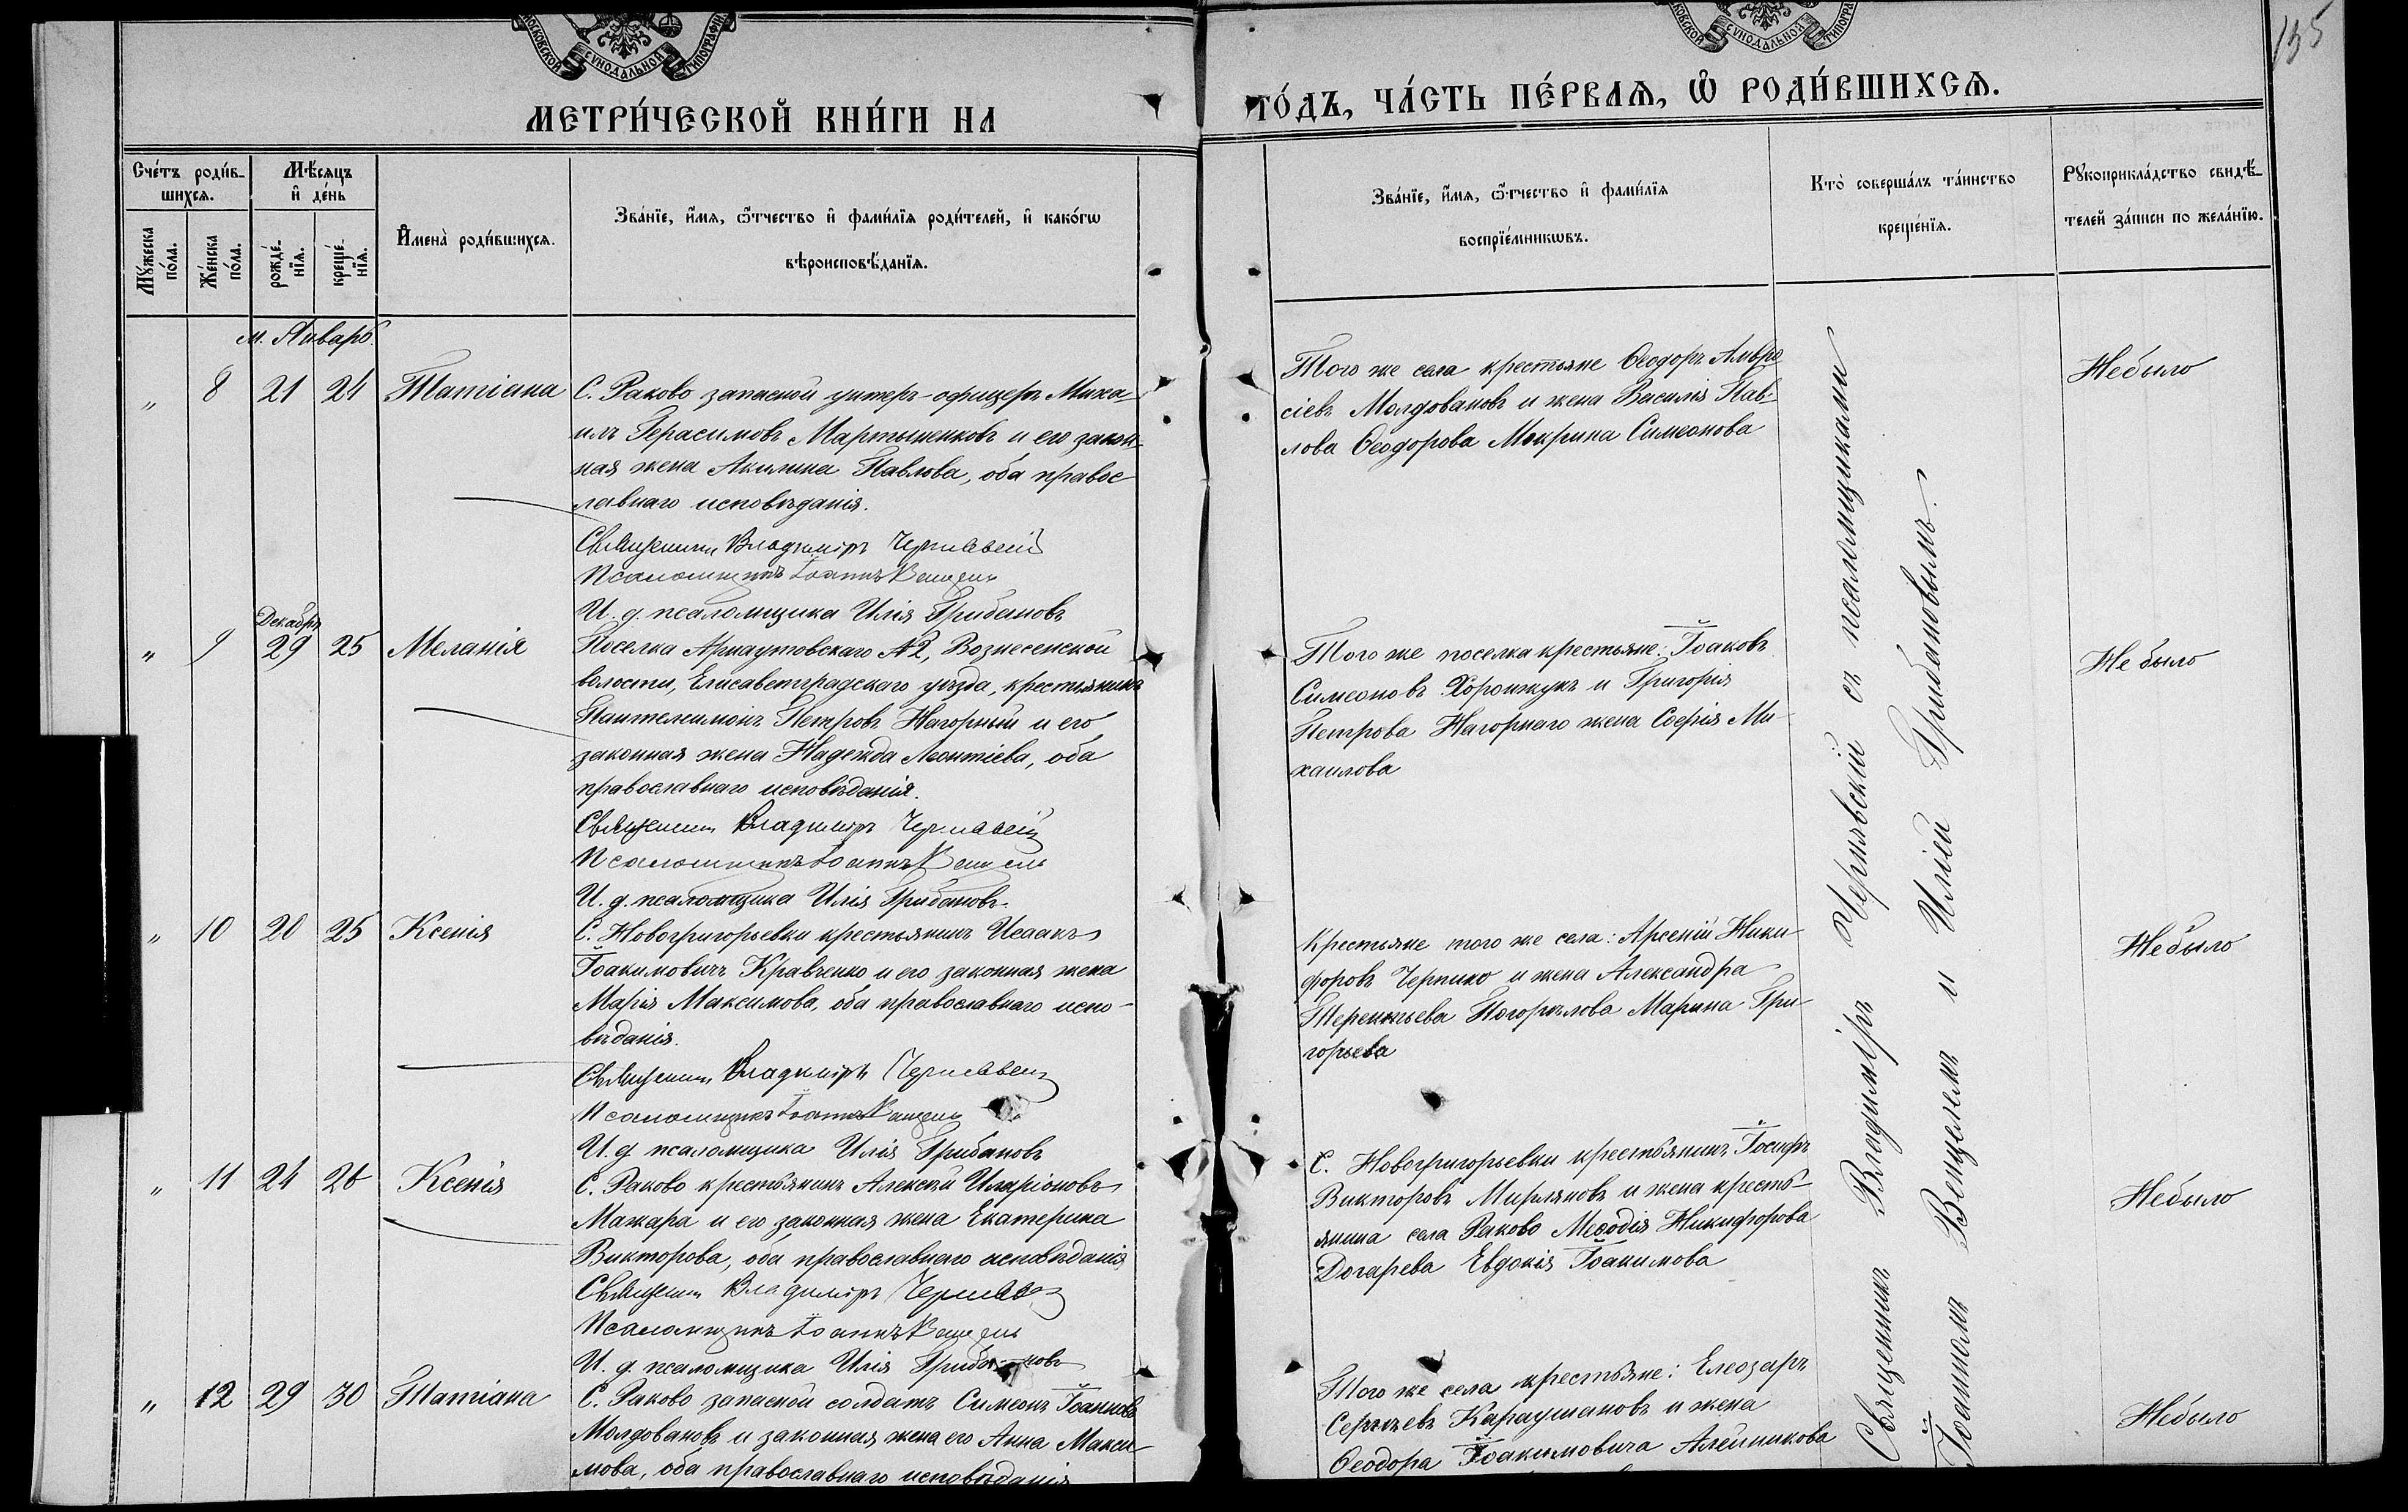 135
МОСКОВСКОЙ СѴНОДАЛЬНОЙ ТИПОГРАФІИ
МЕТРИ́ЧЕСКОЙ КНИ́ГИ НА
ГО́ДЪ, ЧА́СТЬ ПЕ́РВАѦ, Ѡ҆ РОДИ́ВШИХСѦ.
Сче́тъ роди́в-
шихсѧ.
Мꙋ́жеска по́ла.
Же́нска по́ла.
Мѣ́сѧцъ
и҆ де́нь
рожде́-
нїѧ.
креще́-
нїѧ.
И҆мена̀ роди́вшихсѧ.
Зва́нїе, и҆́мѧ, ѻ҆́тчество и҆ фами́лїѧ роди́телей, и҆ како́гѡ
вѣроисповѣ́данїѧ.
Зва́нїе, и҆́мѧ, ѻ҆́тчество и҆ фами́лїѧ
воспрїе́мникѡвъ.
Кто̀ соверша́лъ та́инство
креще́нїѧ.
Рꙋкоприкла́дство свидѣ́-
телей за́писи по жела́нїю.
м. Январь.
" 8 21 24 Татіана
С. Раково запасной унтеръ-офицеръ Миха-
илъ Герасимовъ Мартыненковъ и его закон-
ная жена Акилина Павлова, оба правос-
лавнаго исповѣданія.
Священникъ Владиміръ Чернявскій
Псаломщикъ Іоаннъ Венцель
И. д. псаломщика Илія Грибановъ
Того же села крестьяне Ѳеодоръ Амвро-
сіевъ Молдовановъ и жена Василія Пав-
лова Ѳеодорова Макрина Симеонова
Небыло
Декабрь
" 9 29 25 Меланія
Поселка Арнаутовскаго №2, Вознесенской
волости, Елисаветградскаго уѣзда, крестьянинъ
Пантелеимонъ Петровъ Нагорный и его
законная жена Надежда Леонтіева, оба
православнаго исповѣданія.
Священникъ Владиміръ Чернявскій
Псаломщикъ Іоаннъ Венцель
И. д. псаломщика Илія Грибановъ.
Того же поселка крестьяне: Іоаковъ
Симеоновъ Хоронжукъ и Григорія
Петрова Нагорнаго жена Софія Ми-
хаилова
Не было
" 10 20 25 Ксенія
С. Новогригорьевки крестьянинъ Исаакъ
Іоакимовичъ Кравченко и его законная жена
Марія Максимова, оба православнаго испо-
вѣданія.
Священникъ Владиміръ Чернявскій
Псаломщикъ Іоаннъ Венцель
И. д. псаломщика Илія Грибановъ
Крестьяне того же села: Арсеній Ники-
форовъ Черпико и жена Александра
Терентьева Погорѣлова Марина Гри-
горьева
Небыло
" 11 24 26 Ксенія
С. Раково крестьянинъ Алексѣй Иларіоновъ
Мажара и его законная жена Екатерина
Викторова, оба православнаго исповѣданія
Священникъ Владиміръ Чернявскій
Псаломщикъ Іоаннъ Венцель
И. д. псаломщика Илія Грибановъ
С. Новогригорьевки крестьянинъ Іосифъ
Викторовъ Мирляновъ и жена кресть-
янина села Раково Меѳодія Никифорова
Догарева Евдокія Іоакимова
Небыло
" 12 29 30 Татіана
С. Раково запасной солдатъ Симеонъ Іоанновъ
Молдовановъ и законная жена его Анна Макси-
мова, оба православнаго исповѣданія
Того же села крестьяне: Елеазаръ
Сергѣевъ Караумановъ и жена
Ѳеодора Іоакимовича Алейникова
Небыло
Священникъ Владиміръ Чернявскій съ псаломщиками
Іоанномъ Венцелемъ и Иліей Грибановымъ.